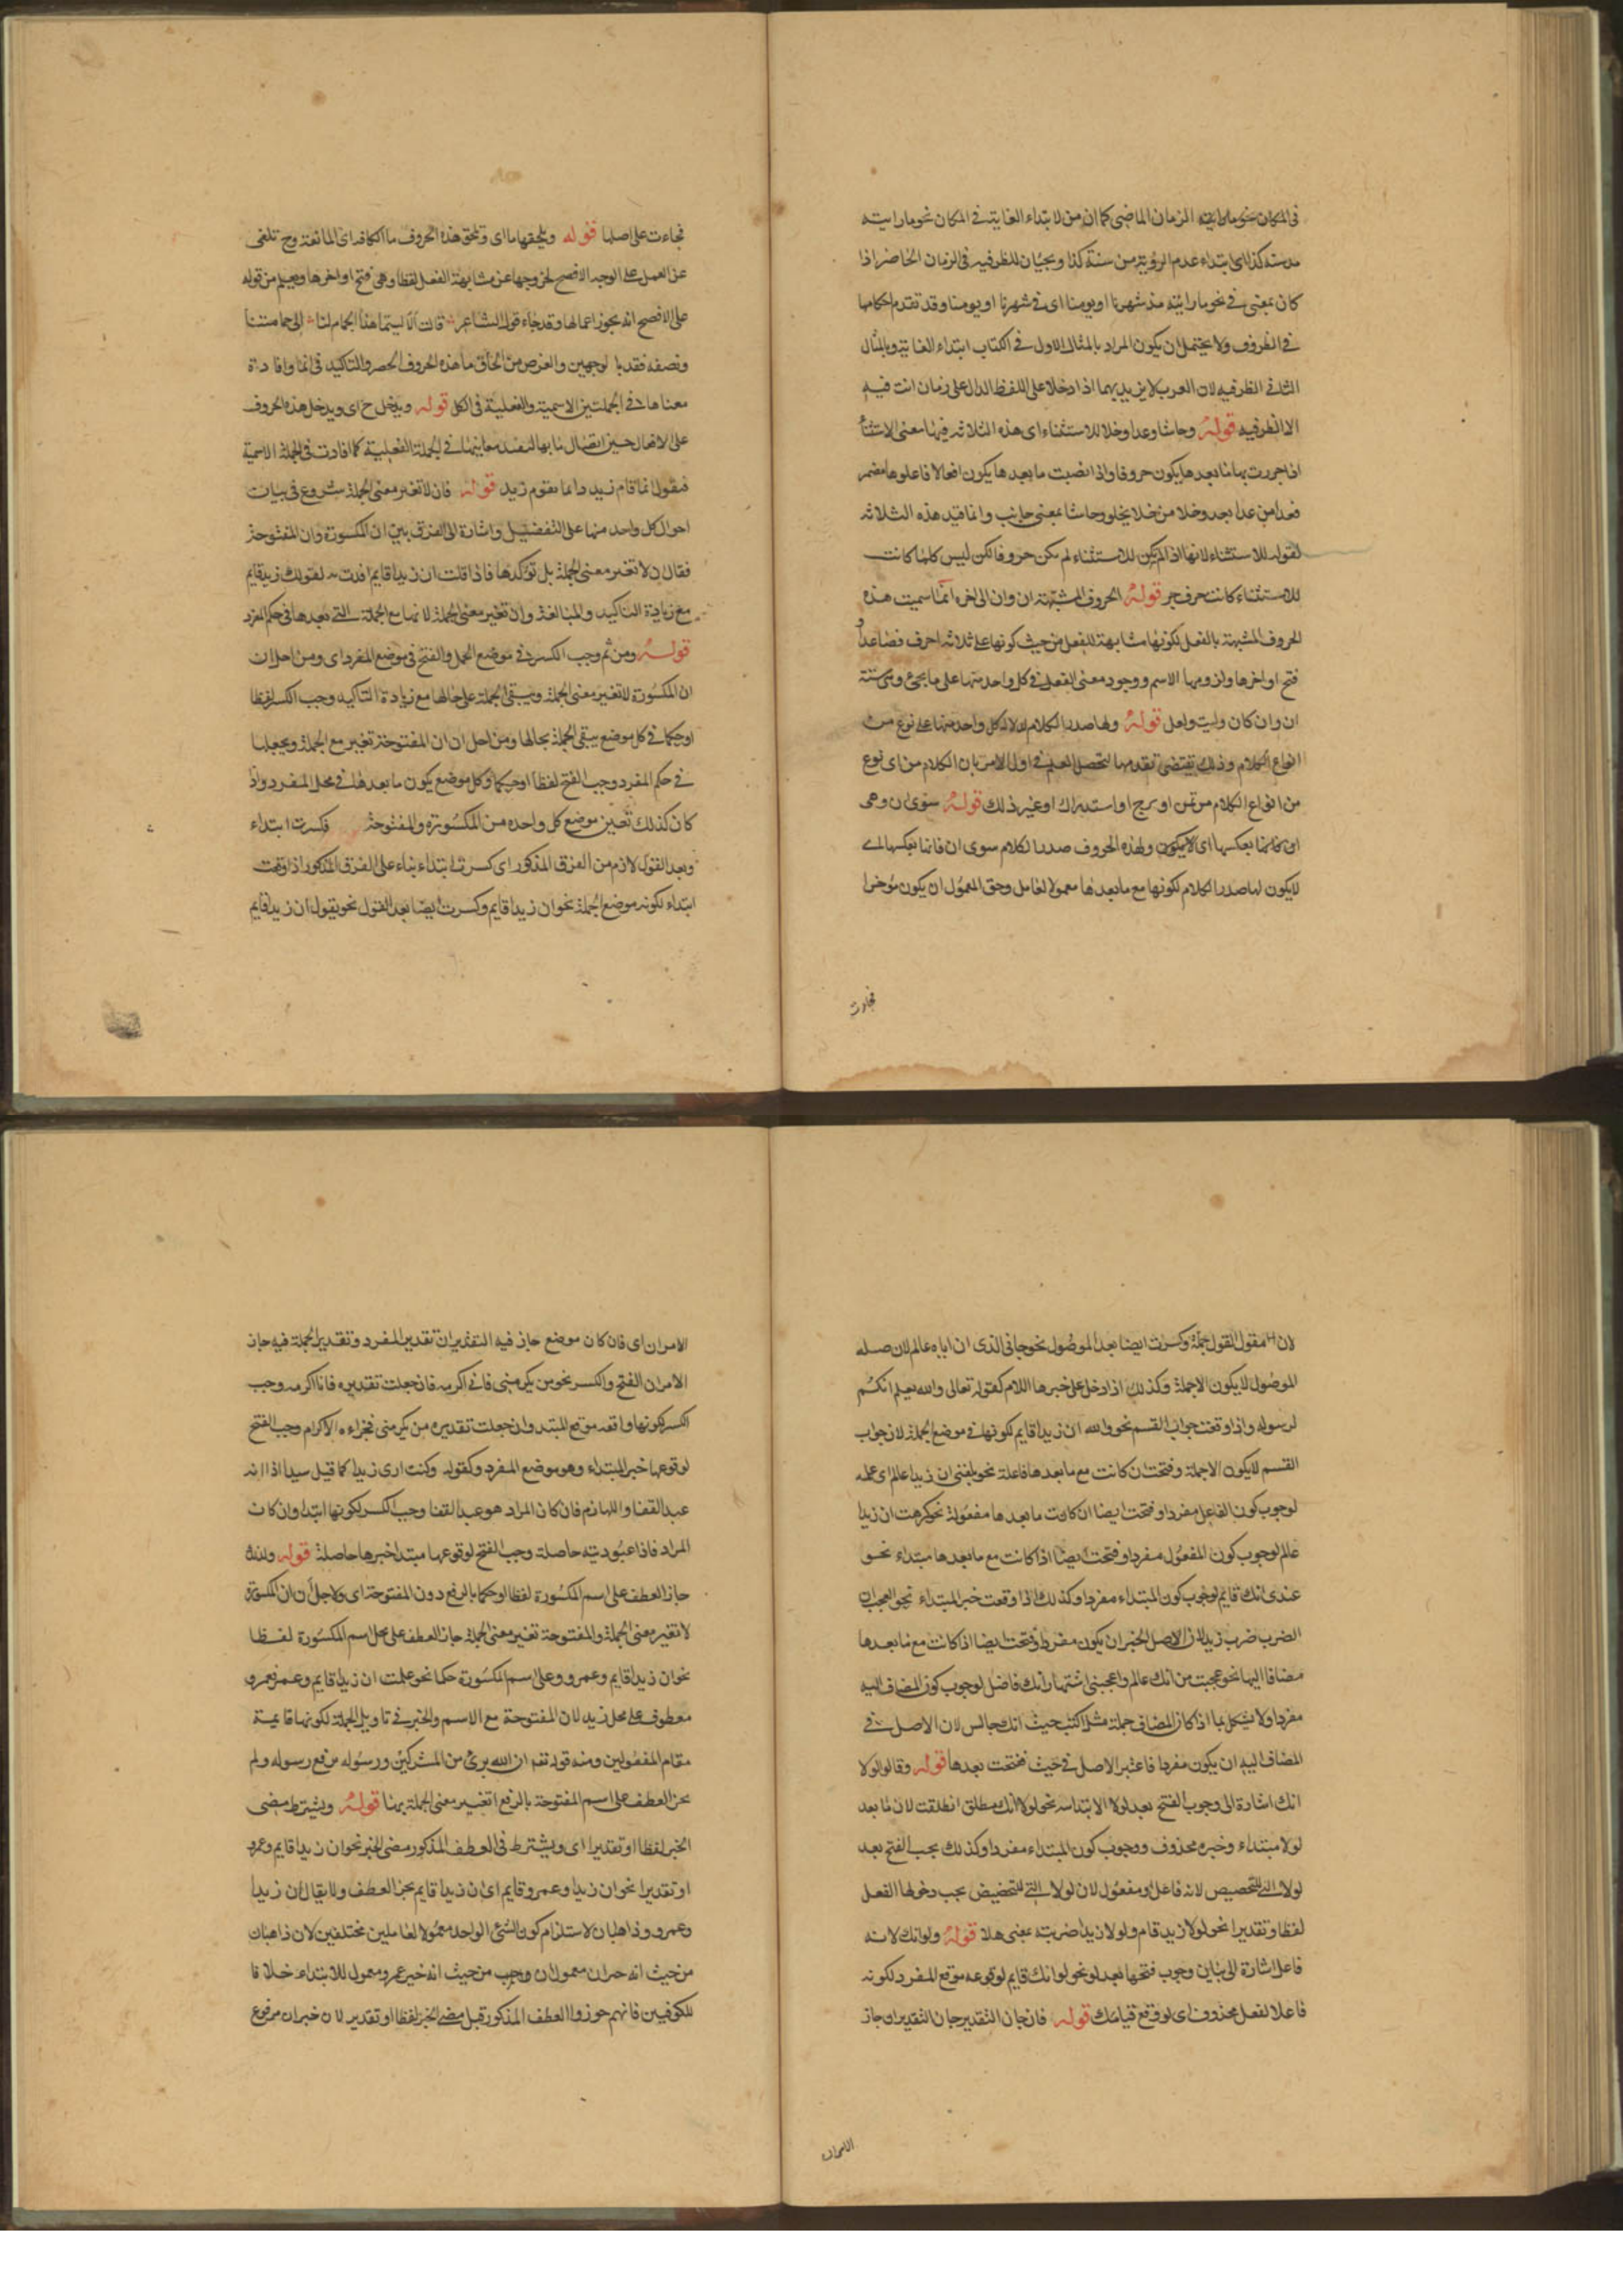 في المكان نحو ما رايته الزمان الماضي كما ان من لابتداء الغاية في المكان نحو ما رايته
من سنة كذا اي ابتداء عدم الرؤية من سنة كذا ويجيان للظرفيه في الزمان الحاضر اذا
كان بمعنى في نحو ما رايته مذ شهرنا او يومنا اي في شهرنا او يومنا وقد تقدم احكامها
في الظروف ولا يحتمل ان يكون المراد بالمثال الاول في الكتاب ابتداء الغاية وبالمثال
الثاني الظرفيه لان العرب لا يريد بهما اذا دخلا على اللفظ الدال على زمان انت فيه
الا الظرفيه قوله وحاشا وعدا وخلا للاستثناء اي هذه الثلاثه فيها معنى الاستثناء
اذا جررت بها ما بعدها يكون حروفا واذا نصبت ما بعدها يكون افعالا فاعلوها مضمر
فعدا من عدا يعد وخلا من خلا يخلو وحاشا بمعنى جانب وانما قيد هذه الثلاثه
لقوله للاستثناء لانها اذا لم يكن للاستثناء لم يكن حروفا لكن ليس كلما كانت
للاستثناء كانت حرف جر قوله الحروف المشبهة ان وان الى اخره انما سميت هذه
الحروف المشبهة بالفعل لكونها مشابهة للفعل من حيث كونها على ثلاثه احرف فصاعدا و
فتح اواخرها ولزومها الاسم ووجود معنى الفعل في كل واحد منها على ما يجيء وهي ستة
ان وان كان وليت ولعل قوله ولها صدر الكلام لدلالة كل واحد منها على نوع من
انواع الكلام وذلك يقتضي تقدمها لتحصل العلم في اول الامر بان الكلام من اي نوع
من انواع الكلام من تمن او ترج او استدراك او غير ذلك قوله سوى ان وهي
ان فانها بعكسها اي لا يكون ولهذه الحروف صدر الكلام سوى ان فانها بعكسها اي
لا يكون لها صدر الكلام لكونها مع ما بعدها معمولا لعامل وحق المعمول ان يكون مؤخرا
فجاءت
فجاءت على اصلها قوله ويلحقها ما اي وتلحق هذه الحروف ما الكافه اي المانعة وح تلغى
عن العمل على الوجه الافصح لخروجها عن مشابهة الفعل لفظا وهي فتح اواخرها ويعلم من قوله
على الافصح انه يجوز اعمالها وقد جاء قول الشاعر قالت الا ليتما هذا الحمام لنا الى حمامتنا
ونصفه فقد با لوجهين والغرض من الحاق ما هذه الحروف الحصر والتاكيد في انما وافادة
معناها في الجملتين الاسمية والفعلية في الكل قوله ويدخل ح اي ويدخل هذه الحروف
على الافعال حين اتصال ما بها لتفيد معانيها في الجملة الفعلية كما افادت في الجملة الاسمية
فيقول انما قام زيد وانما يقوم زيد قوله فان لا تغير معنى الجملة شروع في بيان
احوال كل واحد منها على التفصيل واشارة الى الفرق بين ان المكسورة وان المفتوحة
فقال ان لا تغير معنى الجملة بل توكدها فاذا قلت ان زيدا قايم افدت به لقولك زيد قايم
مع زيادة التاكيد والمبالغة وان تغير معنى الجملة لانها مع الجملة التي بعدها في حكم المفرد
قوله ومن ثم وجب الكسر في موضع الجمل والفتح في موضع المفرد اي ومن اجل ان
ان المكسورة لا تغير معنى الجملة ويبقى الجملة على حالها مع زيادة التاكيد وجب الكسر لفظا
او حكما في كل موضع يبقى الجملة بحالها ومن اجل ان ان المفتوحة تغير مع الجملة ويجعلها
في حكم المفرد وجب الفتح لفظا او حكما وكل موضع يكون ما بعدها في محل المفرد واذ
كان كذلك تعين موضع كل واحده من المكسورة والمفتوحة فكسرت ابتداء
وبعد القول لازم من الفرق المذكور اي كسرت ابتداء بناء على الفرق المذكور اذا وقعت
ابتداء لكونه موضع الجملة نحو ان زيدا قايم وكسرت ايضا بعد القول نحو يقول ان زيدا قايم
لان مقول القول جملة وكسرت ايضا بعد الموصول نحو جاني الذي ان اباه عالم لان صله
الموصول لا يكون الا جملة وكذلك اذا دخل على خبرها اللام كقوله تعالى والله يعلم انك
لرسوله واذا وقعت جواب القسم نحو والله ان زيدا قايم لكونها في موضع الجملة لان جواب
القسم لا يكون الا جملة وفتحت ان كانت مع ما بعدها فاعلة نحو بلغني ان زيدا عالم اي علمه
لوجوب كون الفاعل مفردا وفتحت ايضا ان كانت ما بعدها مفعولة نحو كرهت ان زيدا
عالم لوجوب كون المفعول مفردا وفتحت ايضا اذا كانت مع ما بعدها مبتداء نحو
عندي انك قايم لوجوب كون المبتداء مفردا وكذلك اذا وقعت خبر المبتداء نحو العجب ان
الضرب ضرب زيد لان الاصل الخبر ان يكون مفردا وفتحت ايضا اذا كانت مع ما بعدها
مضافا اليها نحو عجبت من انك عالم واعجبني اشتهار انك فاضل لوجوب كون المضاف اليه
مفردا ولا يشكل بما اذا كان المضاف جملة مثل اكتب حيث انك جالس لان الاصل في
المضاف اليه ان يكون مفردا فاعتبر الاصل في حيث ففتحت بعدها قوله وقالوا لولا
انك اشارة الى وجوب الفتح بعد لولا الابتدايه نحو لولا انك منطلق انطلقت لان ما بعد
لولا مبتداء وخبره محذوف ووجوب كون المبتداء مفردا وكذلك يجب الفتح بعد
لولا التي للتحصيص لانه فاعل او مفعول لان لولا التي للتحضيض يجب دخولها الفعل
لفظا وتقديرا نحو لولا زيد قام ولولا زيدا ضربته بمعنى هلا قوله ولو انك لانه
فاعل اشارة الى بيان وجوب فتحها بعد لو نحو لو انك قايم لوقوعه موقع المفرد لكونه
فاعلا لفعل محذوف اي لو وقع قيامك قوله فان جان التقدير جان التقديران جاز
الامران
الامران اي فان كان موضع جاز فيه التقديران تقدير المفرد وتقدير الجملة فيه جاز
الامران الفتح والكسر نحو من يكرمني فاني اكرمه فان جعلت تقديره فانا اكرمه وجب
الكسر لكونها واقعه موقع المبتدا وان جعلت تقديره من يكرمني فجزاءه الاكرام وجب الفتح
لوقوعها خبر المبتداء وهو موضع المفرد وكقوله وكنت ارى زيدا كما قيل سيدا اذا انه
عبد القفا واللهازم فان كان المراد هو عبد القفا وجب الكسر لكونها ابتدا وان كان
المراد فاذا عبوديته حاصلة وجب الفتح لوقوعها مبتدا خبرها حاصلة قوله ولذلك
جاز العطف على اسم المكسورة لفظا او حكما بالرفع دون المفتوحة اي ولاجل ان ان المكسورة
لا تغير معنى الجملة والمفتوحة تغير معنى الجملة جاز العطف على محل اسم المكسورة لفظا
نحو ان زيدا قايم وعمرو وعلى اسم المكسورة حكما نحو علمت ان زيدا قايم وعمرو فعمرو
معطوف على محل زيد لان المفتوحة مع الاسم والخبر في تاويل الجملة لكونها قايمة
مقام المفعولين ومنه قوله تعم ان الله برئ من المشركين ورسوله من رفع رسوله ولم
يجز العطف على اسم المفتوحة بالرفع اتغير معنى الجملة بها قوله ويشترط مضي
الخبر لفظا او تقديرا اي ويشترط في العطف المذكور مضي الخبر نحو ان زيدا قايم وعمرو
او تقديرا نحو ان زيدا وعمرو قايم اي ان زيدا قايم يجز العطف ولا يقال ان زيدا
وعمرو وذاهبان لاستلزام كون الشئ الواحد معمولا لعاملين مختلفين لان ذاهبان
من حيث انه خبر ان معمول ان وجب من حيث انه خبر عمرو معمول للابتداء خلافا
للكوفيين فانهم جوزوا العطف المذكور قبل مضي الخبر لفظا او تقدير لان خبر ان مرفوع